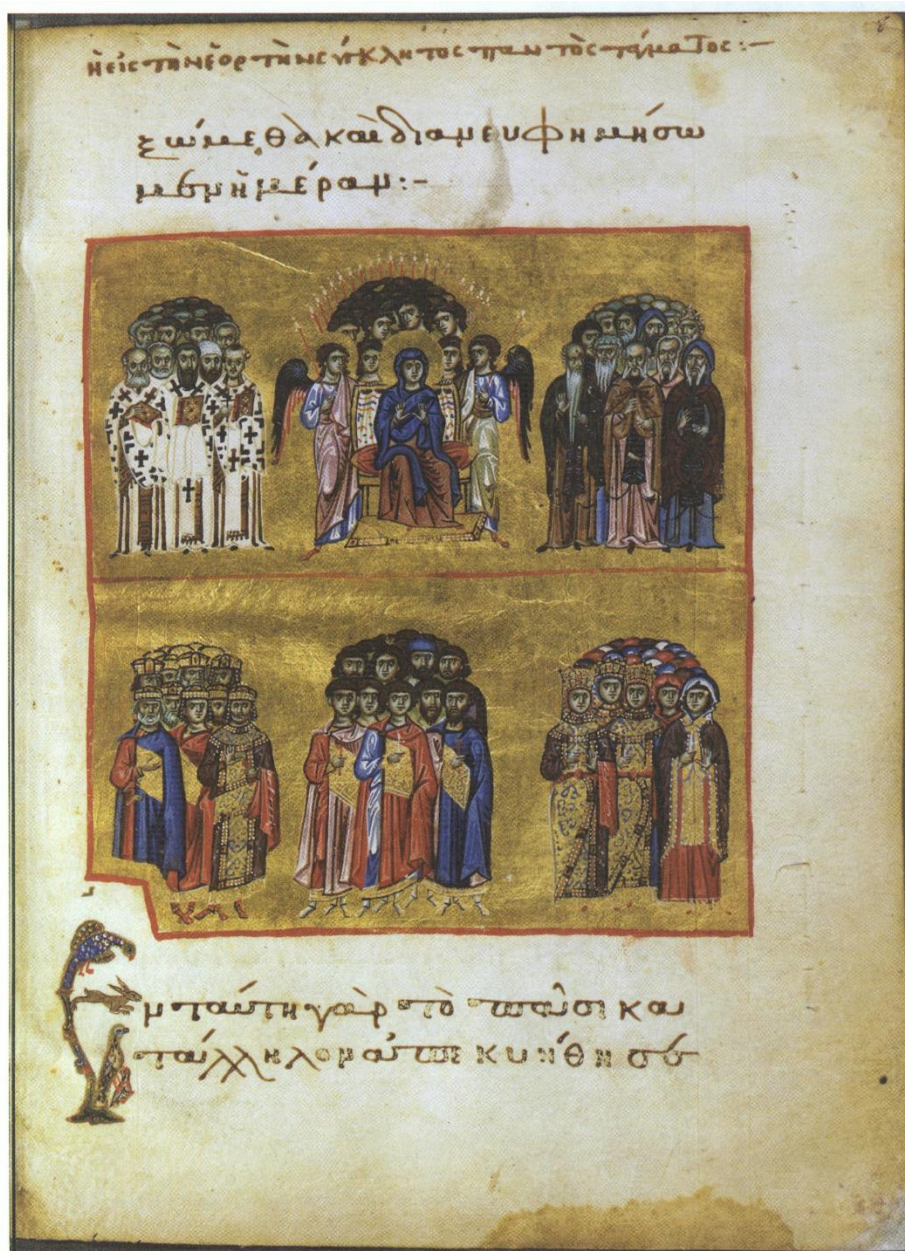 ἡ εἰς τὴν ἑορτὴν σύγκλητος παντὸς τάγματος :–
ξώμεθα καὶ διανευφημήσω
μεν ἡμέραν :–
ν ταύτη γὰρ τὸ πᾶσι κα
τάλληλον ἀπεκυήθη σ